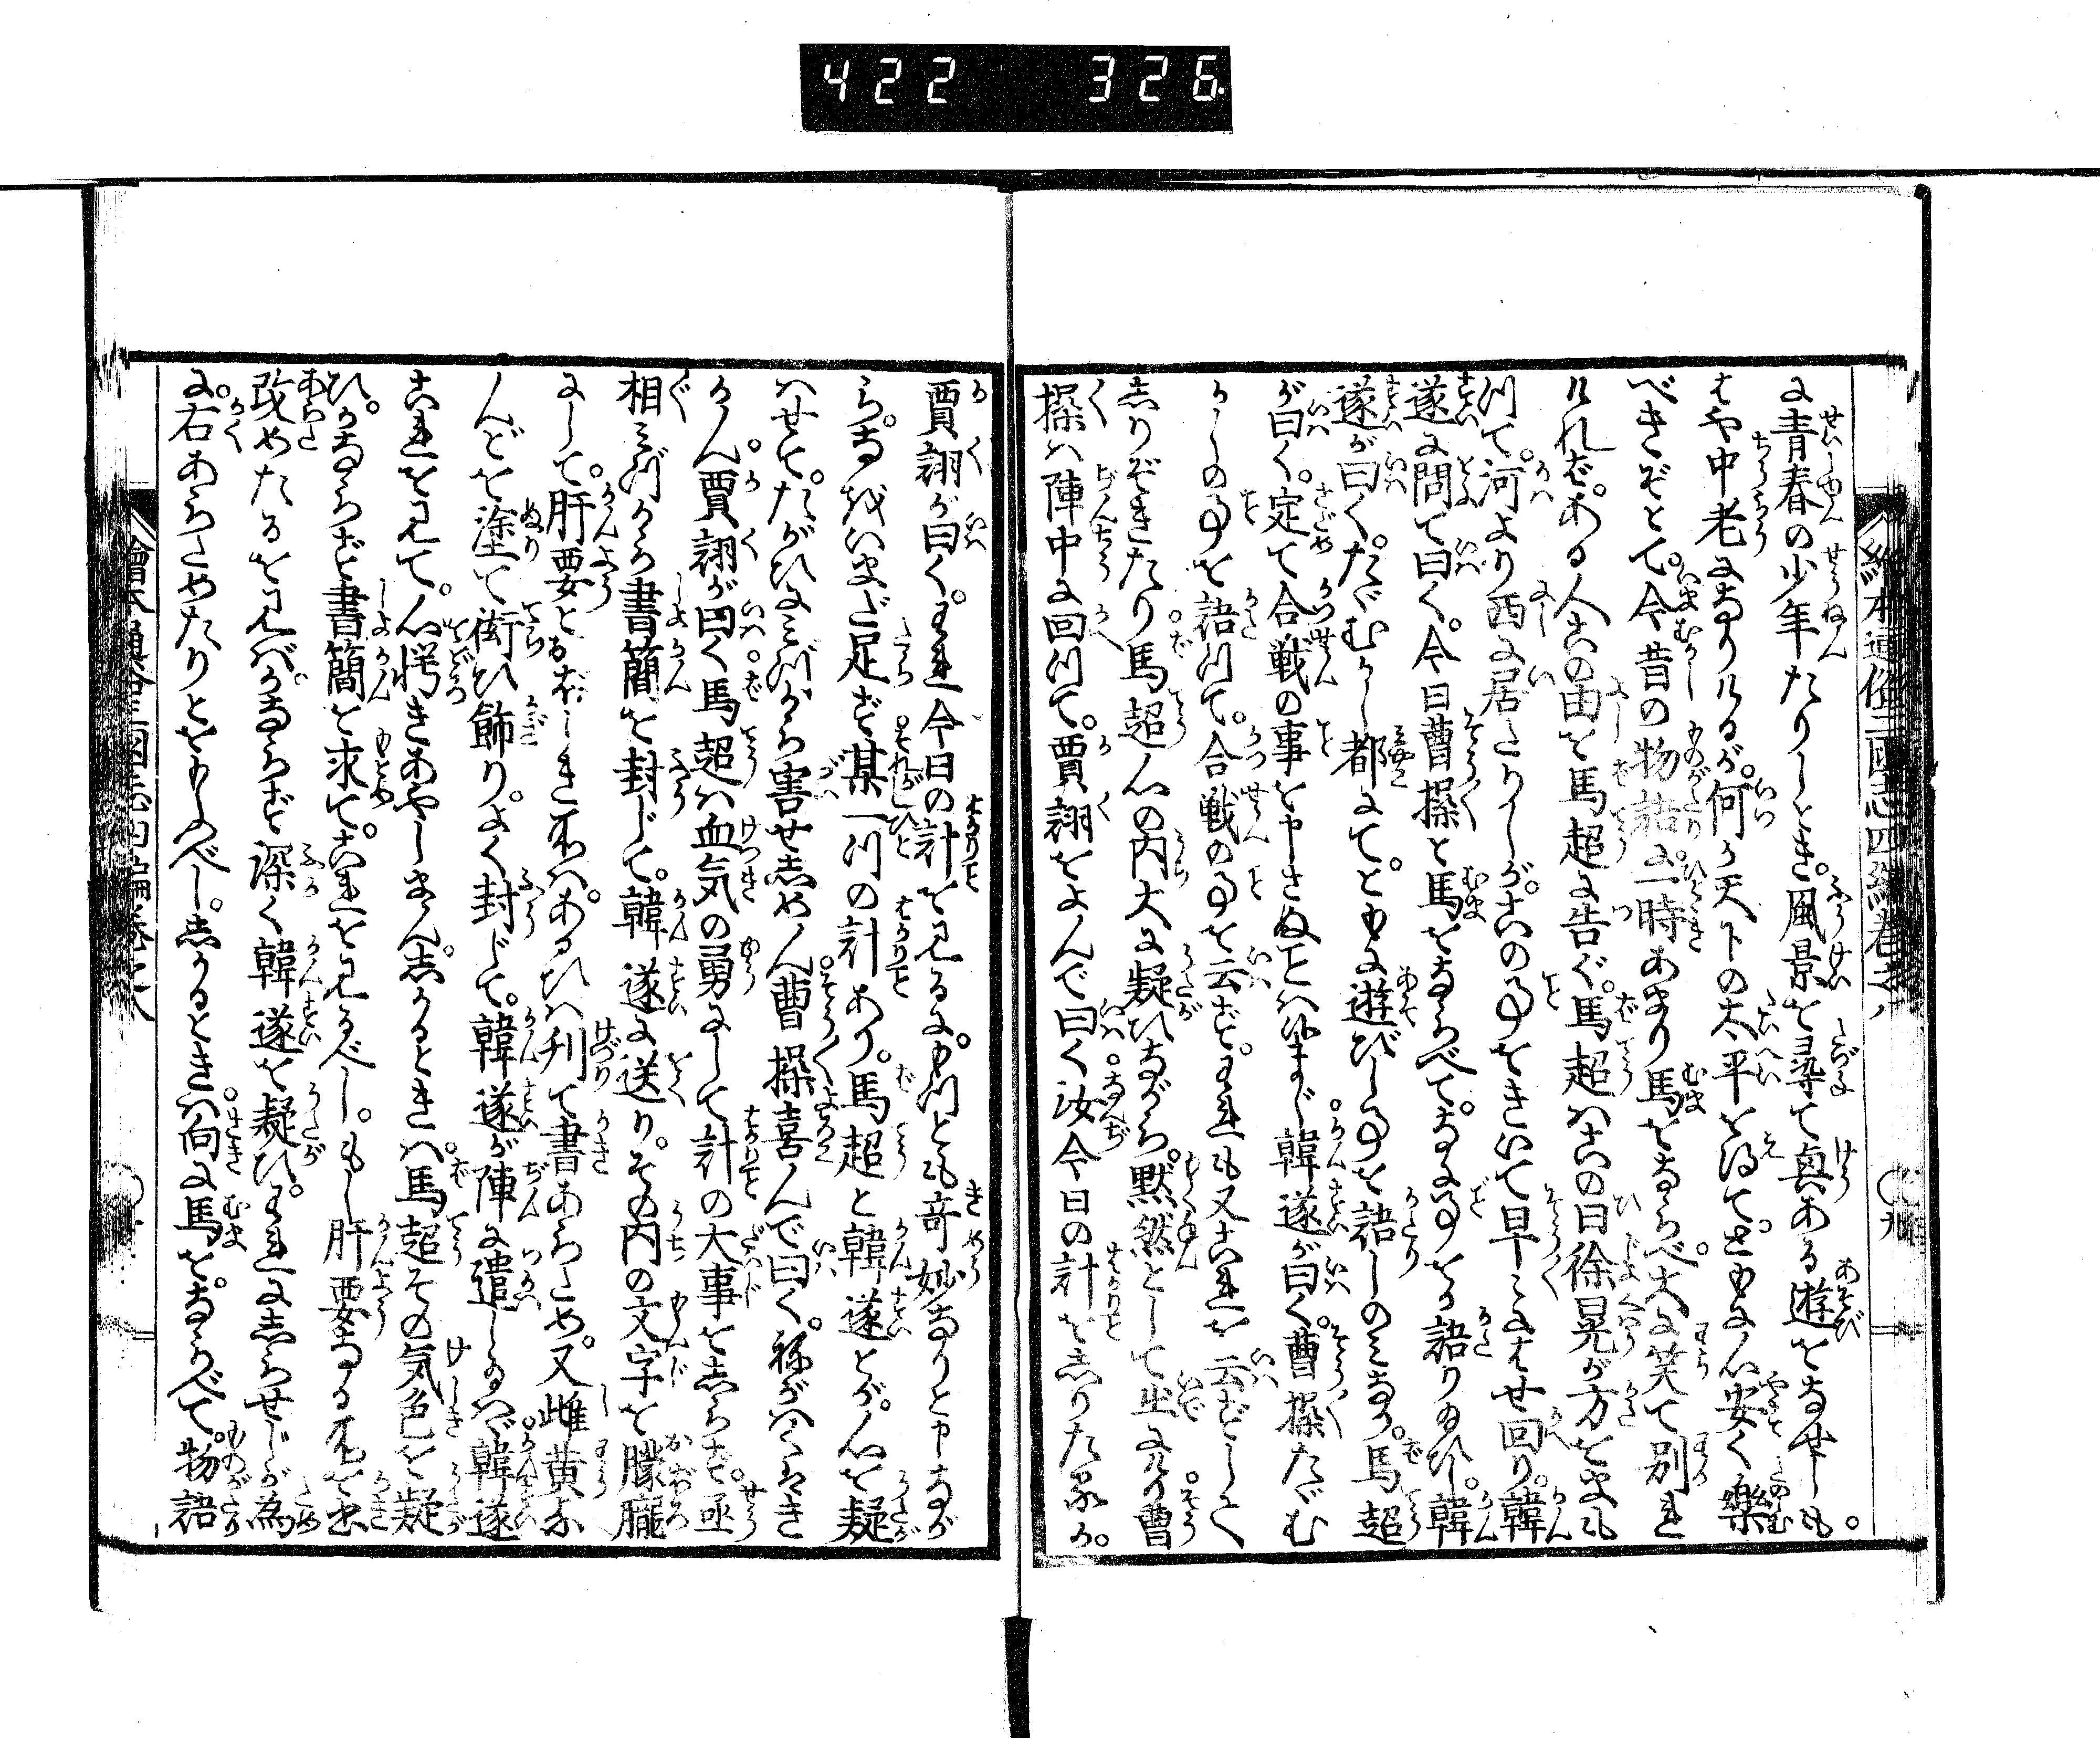 422 326
絵本通俗三國志四編巻之八
に青春の少年たりしとき。風景を尋て真ある遊をなせしも。
はや中老になりけるが。何か天下の太平を得て。ともに心安く樂
べきぞとて。今昔の物語に一時あまり馬をならべ。大に笑て別れ
けれバ。ある人この由を馬超に告ぐ。馬超ハこの日徐晃が方をまも
つて。河より西に居たりしが。此の事をきいて早々はせ回り。韓
遂に問て曰く。今日曹操と馬をならべて。なに事をか語り給ひし。韓
遂が曰く。たゞむかし都にて。ともに遊びし事を語しのミなり。馬超
が曰く。定て合戦の事を申さぬとハ候まじ。韓遂が曰く。曹操たゞむ
かしの事を語つて。合戦の事を云ず。われも又これを云ずしく
しりぞきたり。馬超心の内大に疑ひながら。黙然として出にけり。曹
操ハ陣中に回つて。賈詡をよんで曰く。汝今日の計をしりたるか。
賈詡が曰く。われ今日の計を見るに。もつとも奇妙なりと申ながら
ら。なほいまだ足ず。某一つの計あり。馬超と韓遂とが。心を疑
ハせて。たがひにミづから害せしめん。曹操喜んで曰く。ねがハくハきか
かん。賈詡が曰く。馬超ハ血気の勇にして計の大事をしらず。丞
相ミづから書簡を封じて。韓遂に送り。その内の文字を朦朧
にして。肝要とおぼしき所ハ。あるひハ刊て書あらため。又雌黄な
んどを塗て衒ひ飾り。よく封じて。韓遂が陣に遣し給ハゞ。韓遂
これを見て。心愕きあやしまん。しかるときハ。馬超その気色を疑
ひ。かならず書簡を求て。これを見るべし。もし肝要なる所を書
改めたるを見バ。かならず深く韓遂を疑ひ。われにしらせじが為
に。右あらためたりとをもふべし。しかるときハ。向に馬を。ならべて。物語